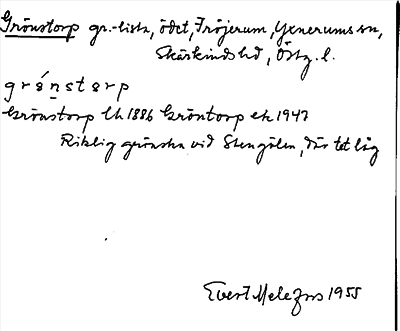 Grönstorp gr.-lista, ödet, Fröjerum, Yxnerums sn,
Skärkinds hd, Östg. l.
grǿnstɐrp
Grönstorp lk 1886 Gröntorp ek 1947
Riklig grönska vid Stengölen, där tet låg
Evert Melefors 1955